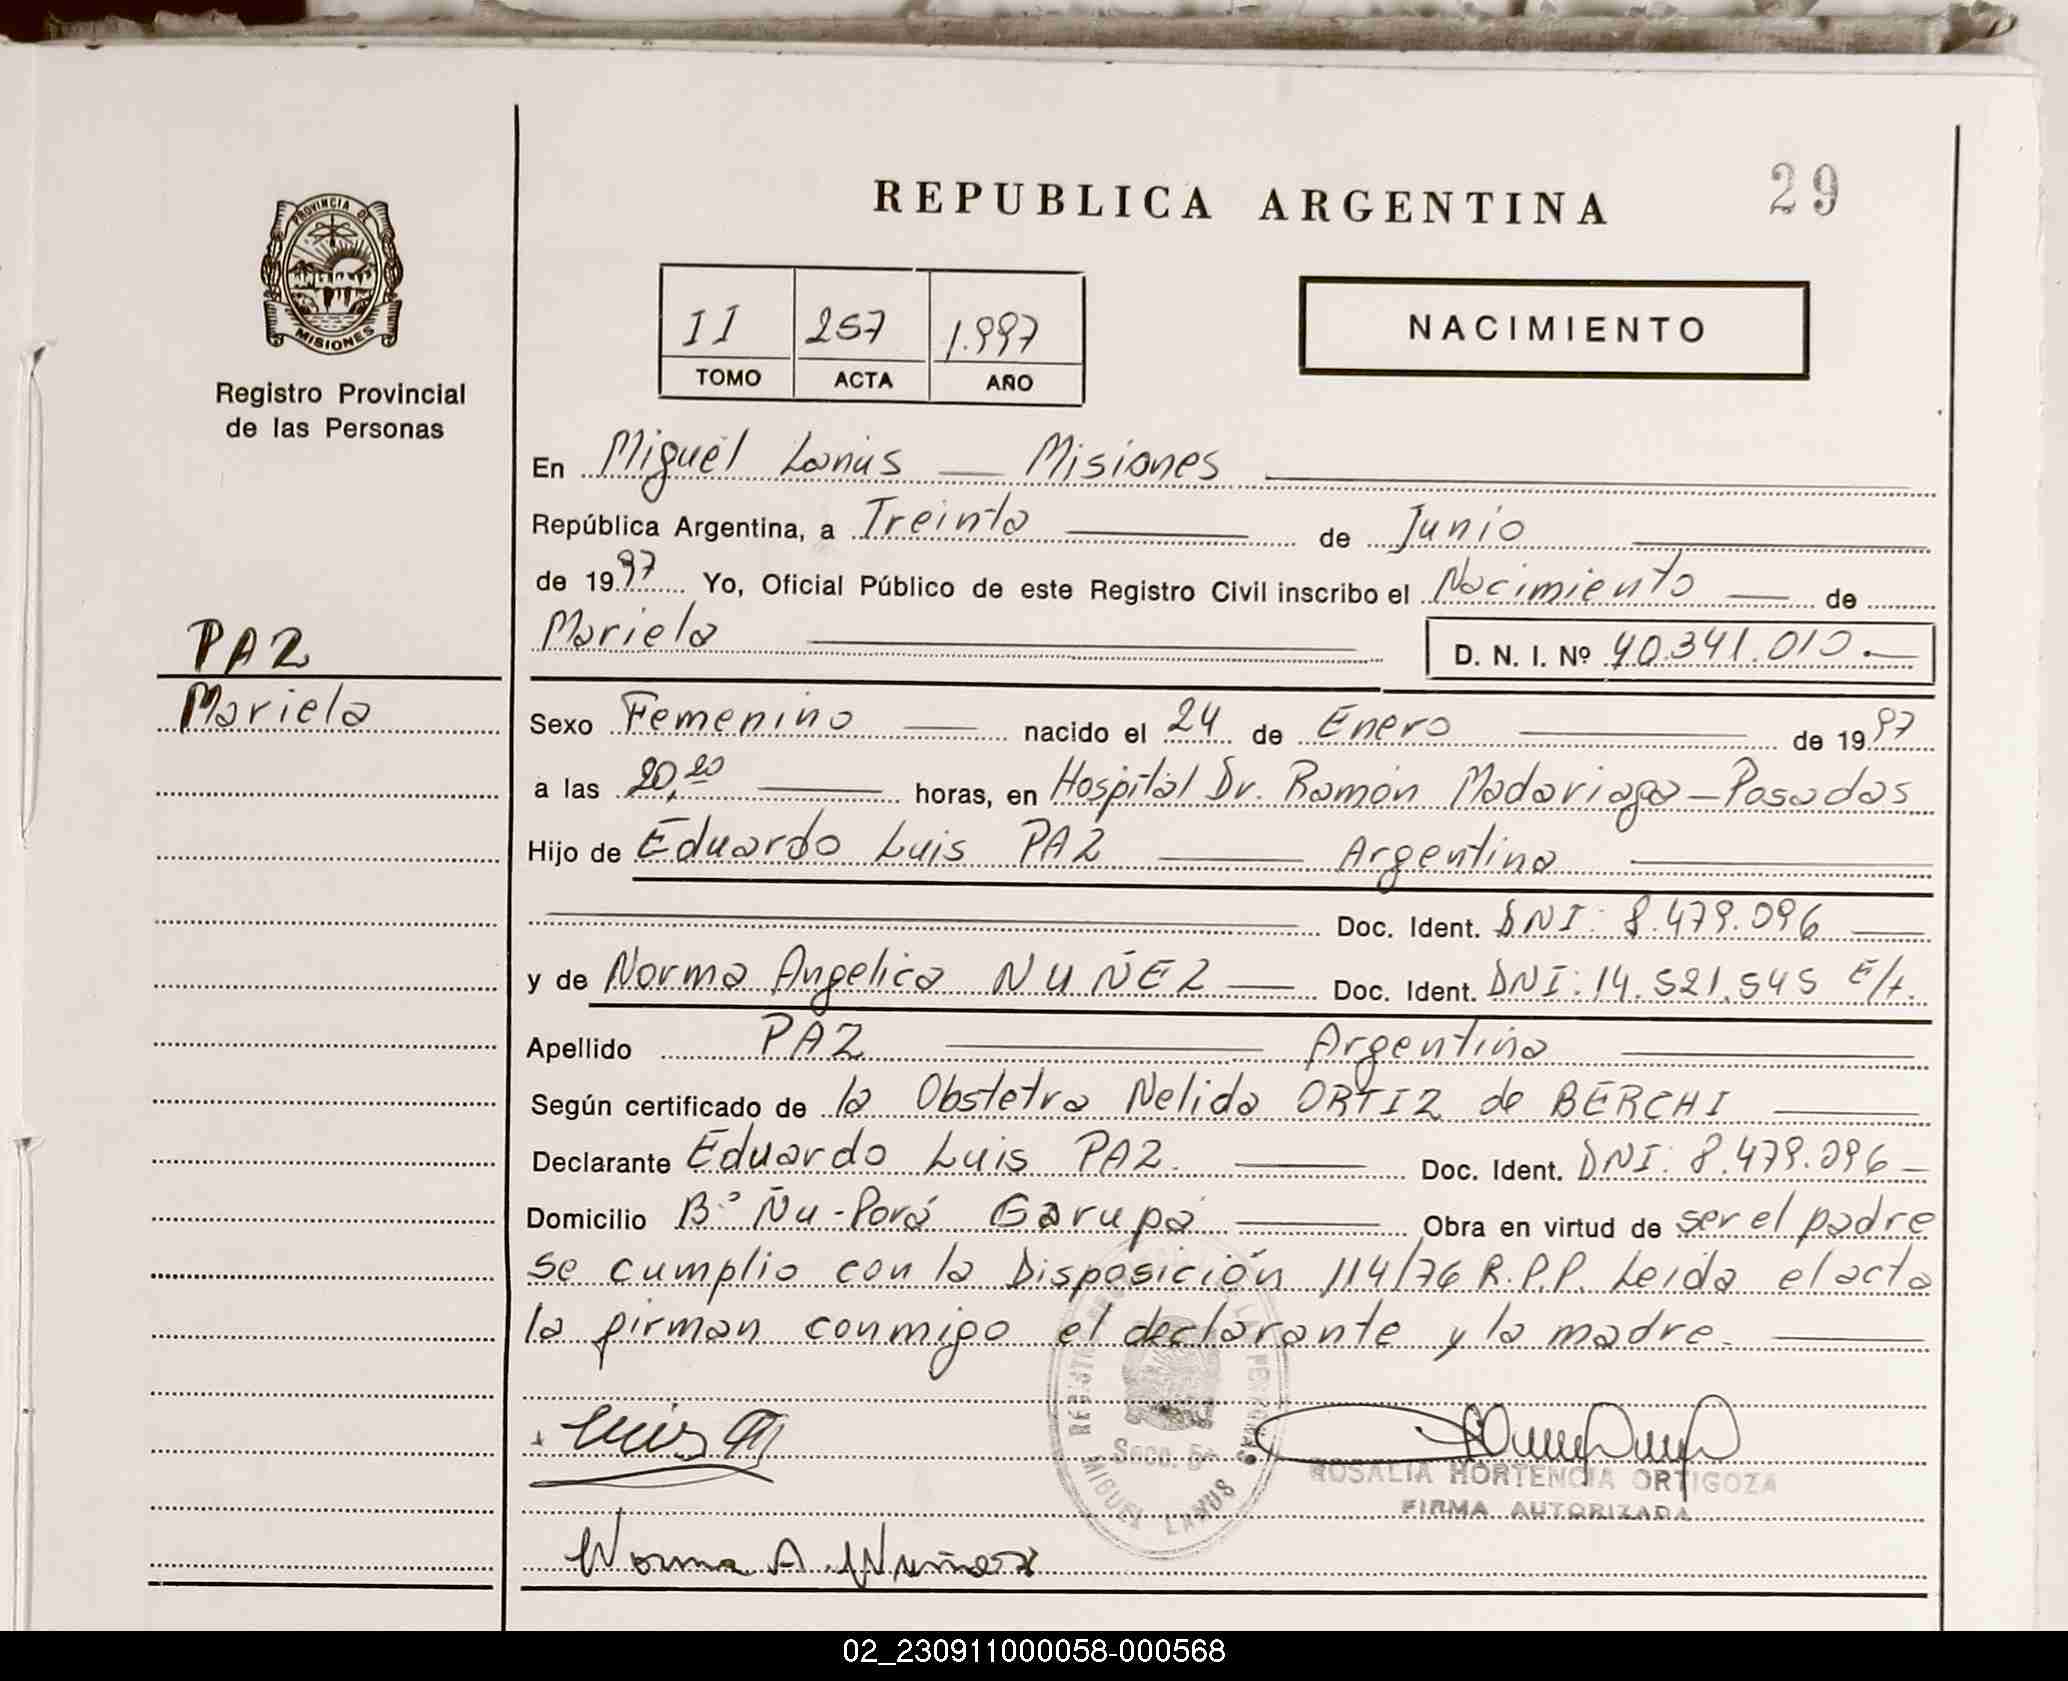 REPUBLICA ARGENTINA
29
PROVINCIA DE
MISIONES
Registro Provincial
de las Personas
II 257 1.997
TOMO ACTA AÑO
NACIMIENTO
En Miguel Lanús — Misiones
República Argentina, a Treinta de Junio
de 1997 Yo, Oficial Público de este Registro Civil inscribo el Nacimiento — de
Mariela D. N. I. Nº 40.341.010.—
PAZ
Mariela
Sexo Femenino — nacido el 24 de Enero de 1997
a las 20,20 horas, en Hospital Dr. Ramón Madariaga - Posadas
Hijo de Eduardo Luis PAZ — Argentina
Doc. Ident. DNI: 8.479.096
y de Norma Angelica NUÑEZ — Doc. Ident. DNI: 14.521.545 E/t.
Apellido PAZ — Argentina
Según certificado de la Obstetra Nelida ORTIZ de BERCHI
Declarante Eduardo Luis PAZ. — Doc. Ident. DNI: 8.479.096 —
Domicilio Bº Ñu-Porá Garupá — Obra en virtud de ser el padre
se cumplio con la Disposición 114/76 R.P.P. Leida el acta
la firman conmigo el declarante y la madre.
Luis
REGISTRO PERSONAS
Secc. 5ª
MIGUEL LANUS
ROSALIA HORTENCIA ORTIGOZA
FIRMA AUTORIZADA
Norma A. Nuñez
02_230911000058-000568